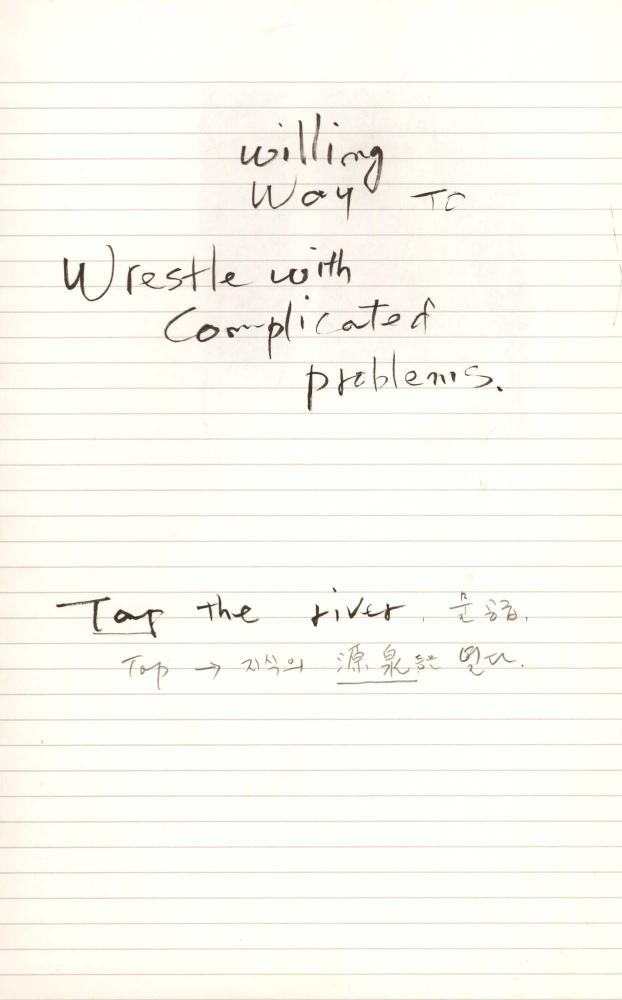 willing
Way To
Wrestle with
Complicated
problems.
Tap the river. 물공급.
Tap → 지식의 源泉을 열다.